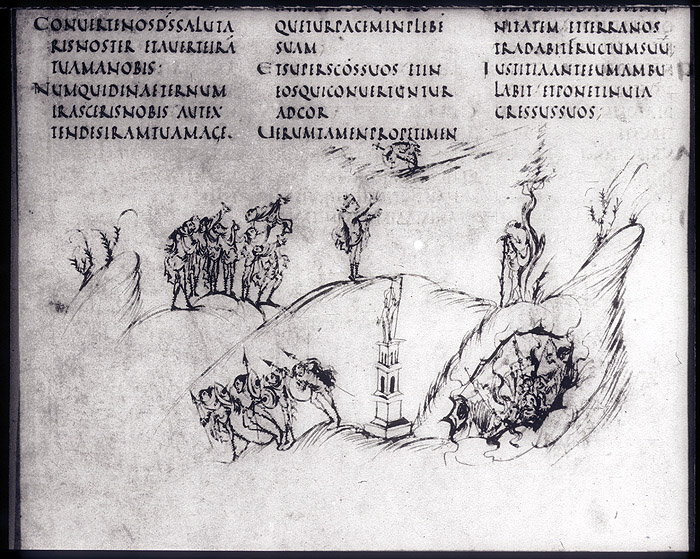 CONUERTENOSDS̄SALUTA
RISNOSTER ETAUERTEIRĀ
TUAMANOBIS·
NUMQUIDINAETERNUM
IRASCERISNOBIS AUTEX
TENDESIRAMTUAMAGE.
QUETURPACEMINPLEBĒ
SUAM
ETSUPERSCŌSSUOS ETIN
EOSQUICONUERTUNTUR
ADCOR
UERUMTAMENPROPETIMEN
NITATEM ETTERRANOS
TRADABITFRUCTUMSUU
IUSTITIAANTEEUMAMBU
LABIT ETPONETINUIA
GRESSUSSUOS